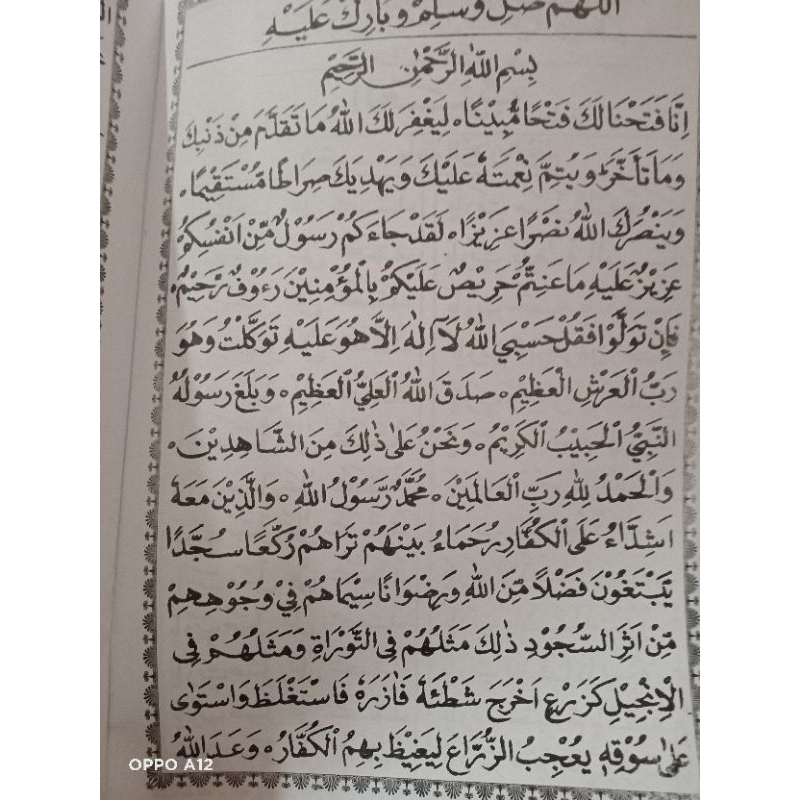 اللهم صل وسلم وبارك عليه
بِسْمِ اللهِ الرَّحْمٰنِ الرَّحِيْمِ
اِنَّا فَتَحْنَا لَكَ فَتْحًا مُّبِيْنًا، لِيَغْفِرَ لَكَ اللهُ مَا تَقَدَّمَ مِنْ ذَنْبِكَ
وَمَا تَأَخَّرَ وَيُتِمَّ نِعْمَتَهُ عَلَيْكَ وَيَهْدِيَكَ صِرَاطًا مُّسْتَقِيْمًا،
وَيَنْصُرَكَ اللهُ نَصْرًا عَزِيْزًا، لَقَدْ جَاءَكُمْ رَسُوْلٌ مِّنْ اَنْفُسِكُمْ
عَزِيْزٌ عَلَيْهِ مَا عَنِتُّمْ حَرِيْصٌ عَلَيْكُمْ بِالْمُؤْمِنِيْنَ رَءُوْفٌ رَّحِيْمٌ،
فَاِنْ تَوَلَّوْا فَقُلْ حَسْبِيَ اللهُ لَآ اِلٰهَ اِلَّا هُوَ عَلَيْهِ تَوَكَّلْتُ وَهُوَ
رَبُّ الْعَرْشِ الْعَظِيْمِ، صَدَقَ اللهُ الْعَلِيُّ الْعَظِيْمِ، وَبَلَّغَ رَسُوْلُهُ
النَّبِيُّ الْحَبِيْبُ الْكَرِيْمُ، وَنَحْنُ عَلٰى ذٰلِكَ مِنَ الشَّاهِدِيْنَ،
وَالْحَمْدُ لِلّٰهِ رَبِّ الْعَالَمِيْنَ، مُحَمَّدٌ رَّسُوْلُ اللهِ، وَالَّذِيْنَ مَعَهُ
اَشِدَّاءُ عَلَى الْكُفَّارِ رُحَمَاءُ بَيْنَهُمْ تَرَاهُمْ رُكَّعًا سُجَّدًا
يَّبْتَغُوْنَ فَضْلًا مِّنَ اللهِ وَرِضْوَانًا سِيْمَاهُمْ فِيْ وُجُوْهِهِمْ
مِّنْ اَثَرِ السُّجُوْدِ ذٰلِكَ مَثَلُهُمْ فِى التَّوْرَاةِ وَمَثَلُهُمْ فِى
الْاِنْجِيْلِ كَزَرْعٍ اَخْرَجَ شَطْئَهُ فَاٰزَرَهُ فَاسْتَغْلَظَ وَاسْتَوٰى
عَلٰى سُوْقِهٖ يُعْجِبُ الزُّرَّاعَ لِيَغِيْظَ بِهِمُ الْكُفَّارَ، وَعَدَ اللهُ
OPPO A12